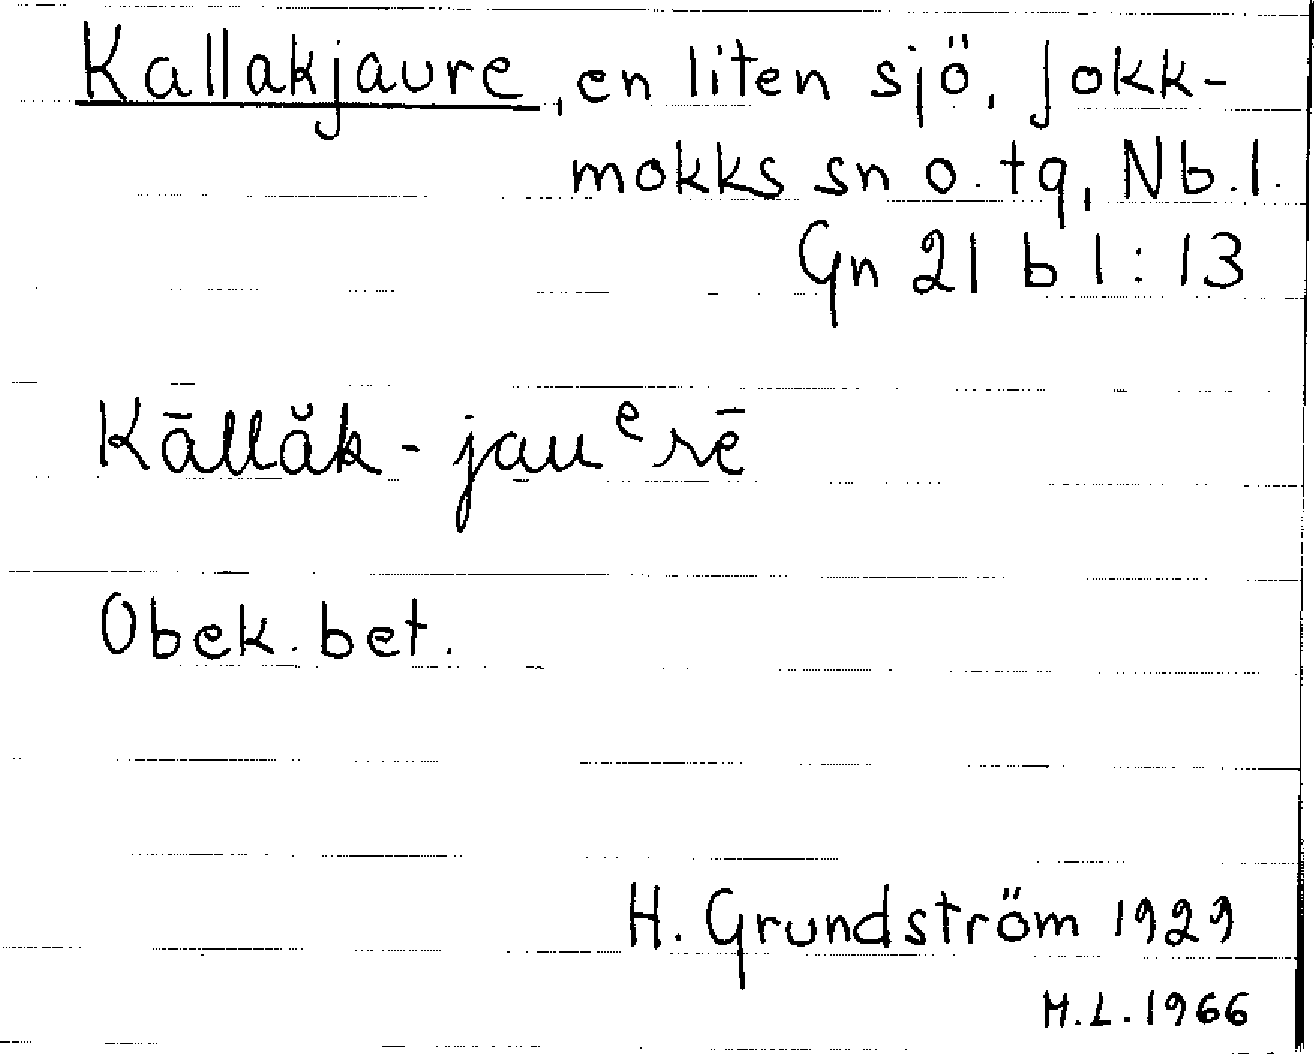 Kallakjaure, en liten sjö, Jokk-
mokks sn o. tg, Nb. l.
Gn 21 b 1 : 13
Kāllăk - jau̱ᵉrē
Obek. bet.
H. Grundström 1929
H.L. 1966